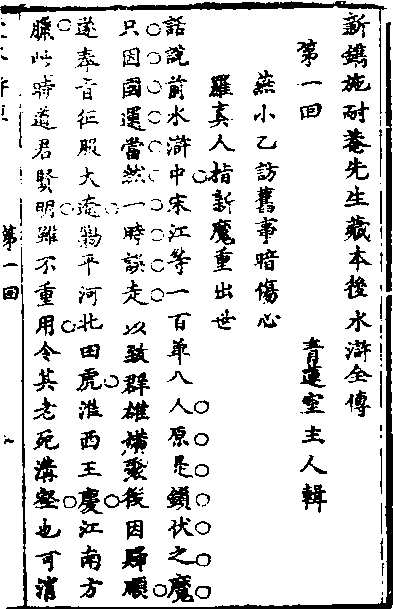 新鐫施耐菴先生藏本後水滸全傳
青蓮室主人輯
第一回
燕小乙訪舊事暗傷心
羅真人指新魔重出世
話說前水滸中宋江等一百單八人原是鎖伏之魔
只因國運當然一時誤走以致群雄橫聚後因歸順
遂奉旨征服大遼勦平河北田虎淮西王慶江南方
臘此時道君賢明雖不重用令其老死溝壑也可消
第一回